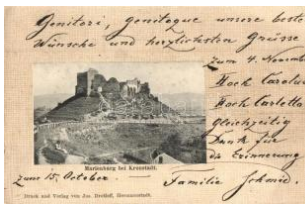 Genitori, Genitoque unsere besten
Wünsche und herzlichsten Grüsse
zum 4. November
Hoch Carolus
Hoch Carlotta
Gleichzeitig
Dank für
die Erinnerung
zum 15. October.
Familie
Marienburg bei Kronstadt.
Druck und Verlag von Jos. Drotleff, Hermannstadt.